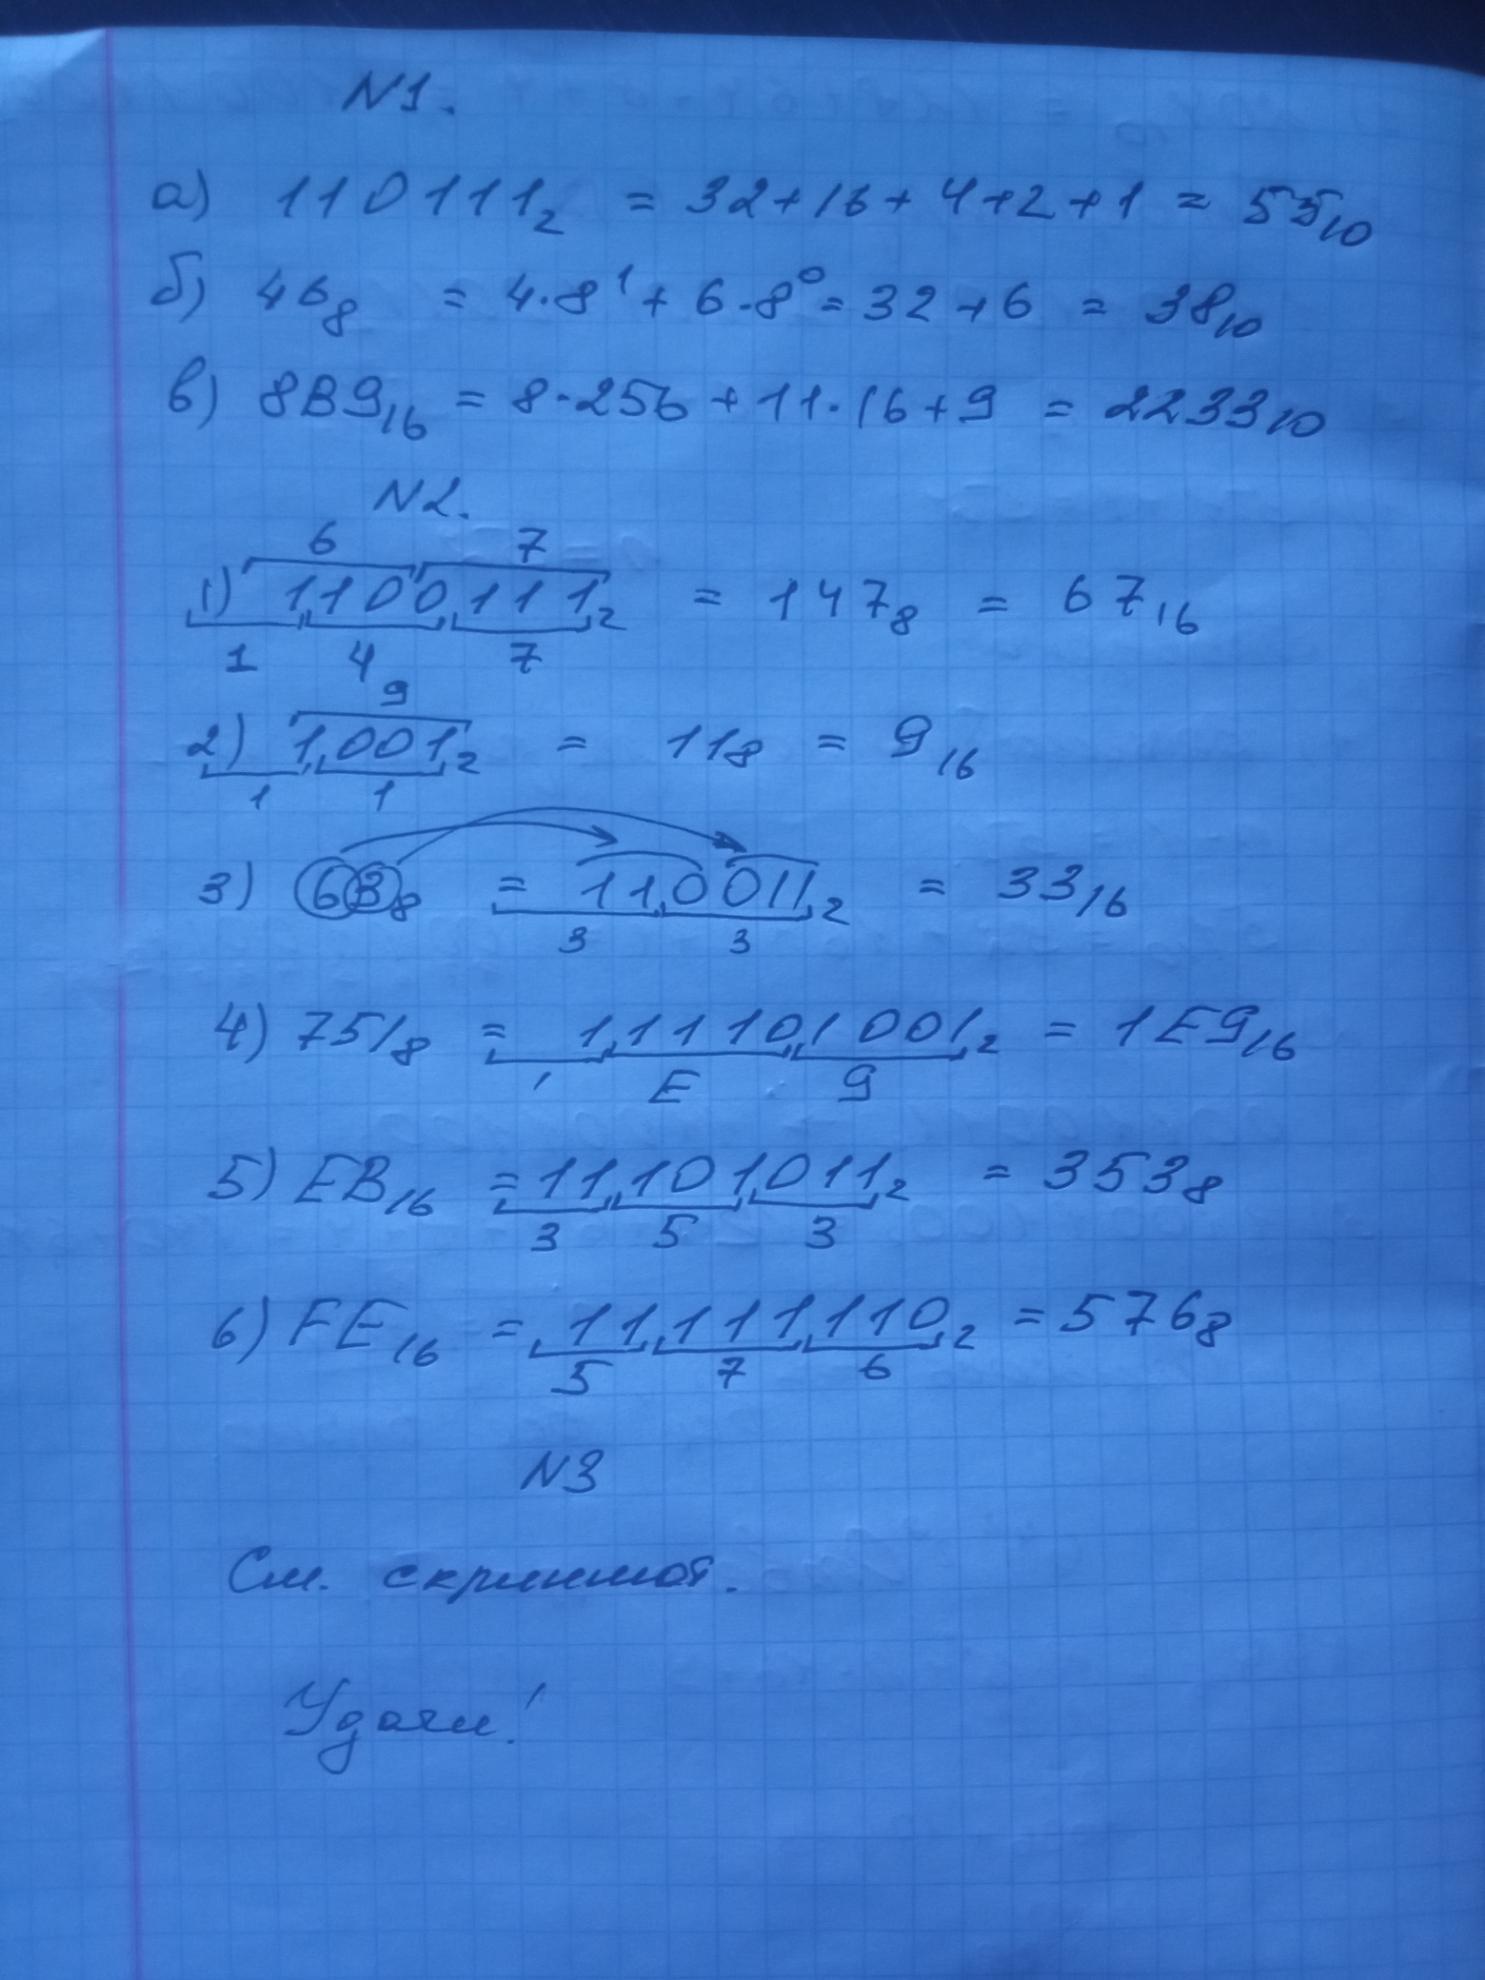 N1.
а) 110111₂ = 32+16+4+2+1 = 55₁₀
б) 46₈ = 4·8¹ + 6·8⁰ = 32+6 = 38₁₀
в) 8B9₁₆ = 8·256 + 11·16+9 = 2233₁₀
N2.
6 7
1) 1100111₂ = 147₈ = 67₁₆
1 4 7
9
2) 1001₂ = 11₈ = 9₁₆
1 1
3) 63₈ = 110011₂ = 33₁₆
3 3
4) 751₈ = 111101001₂ = 1E9₁₆
1 E 9
5) EB₁₆ = 11101011₂ = 353₈
3 5 3
6) FE₁₆ = 11111110₂ = 576₈
5 7 6
N3
См. скриншот.
Удачи!